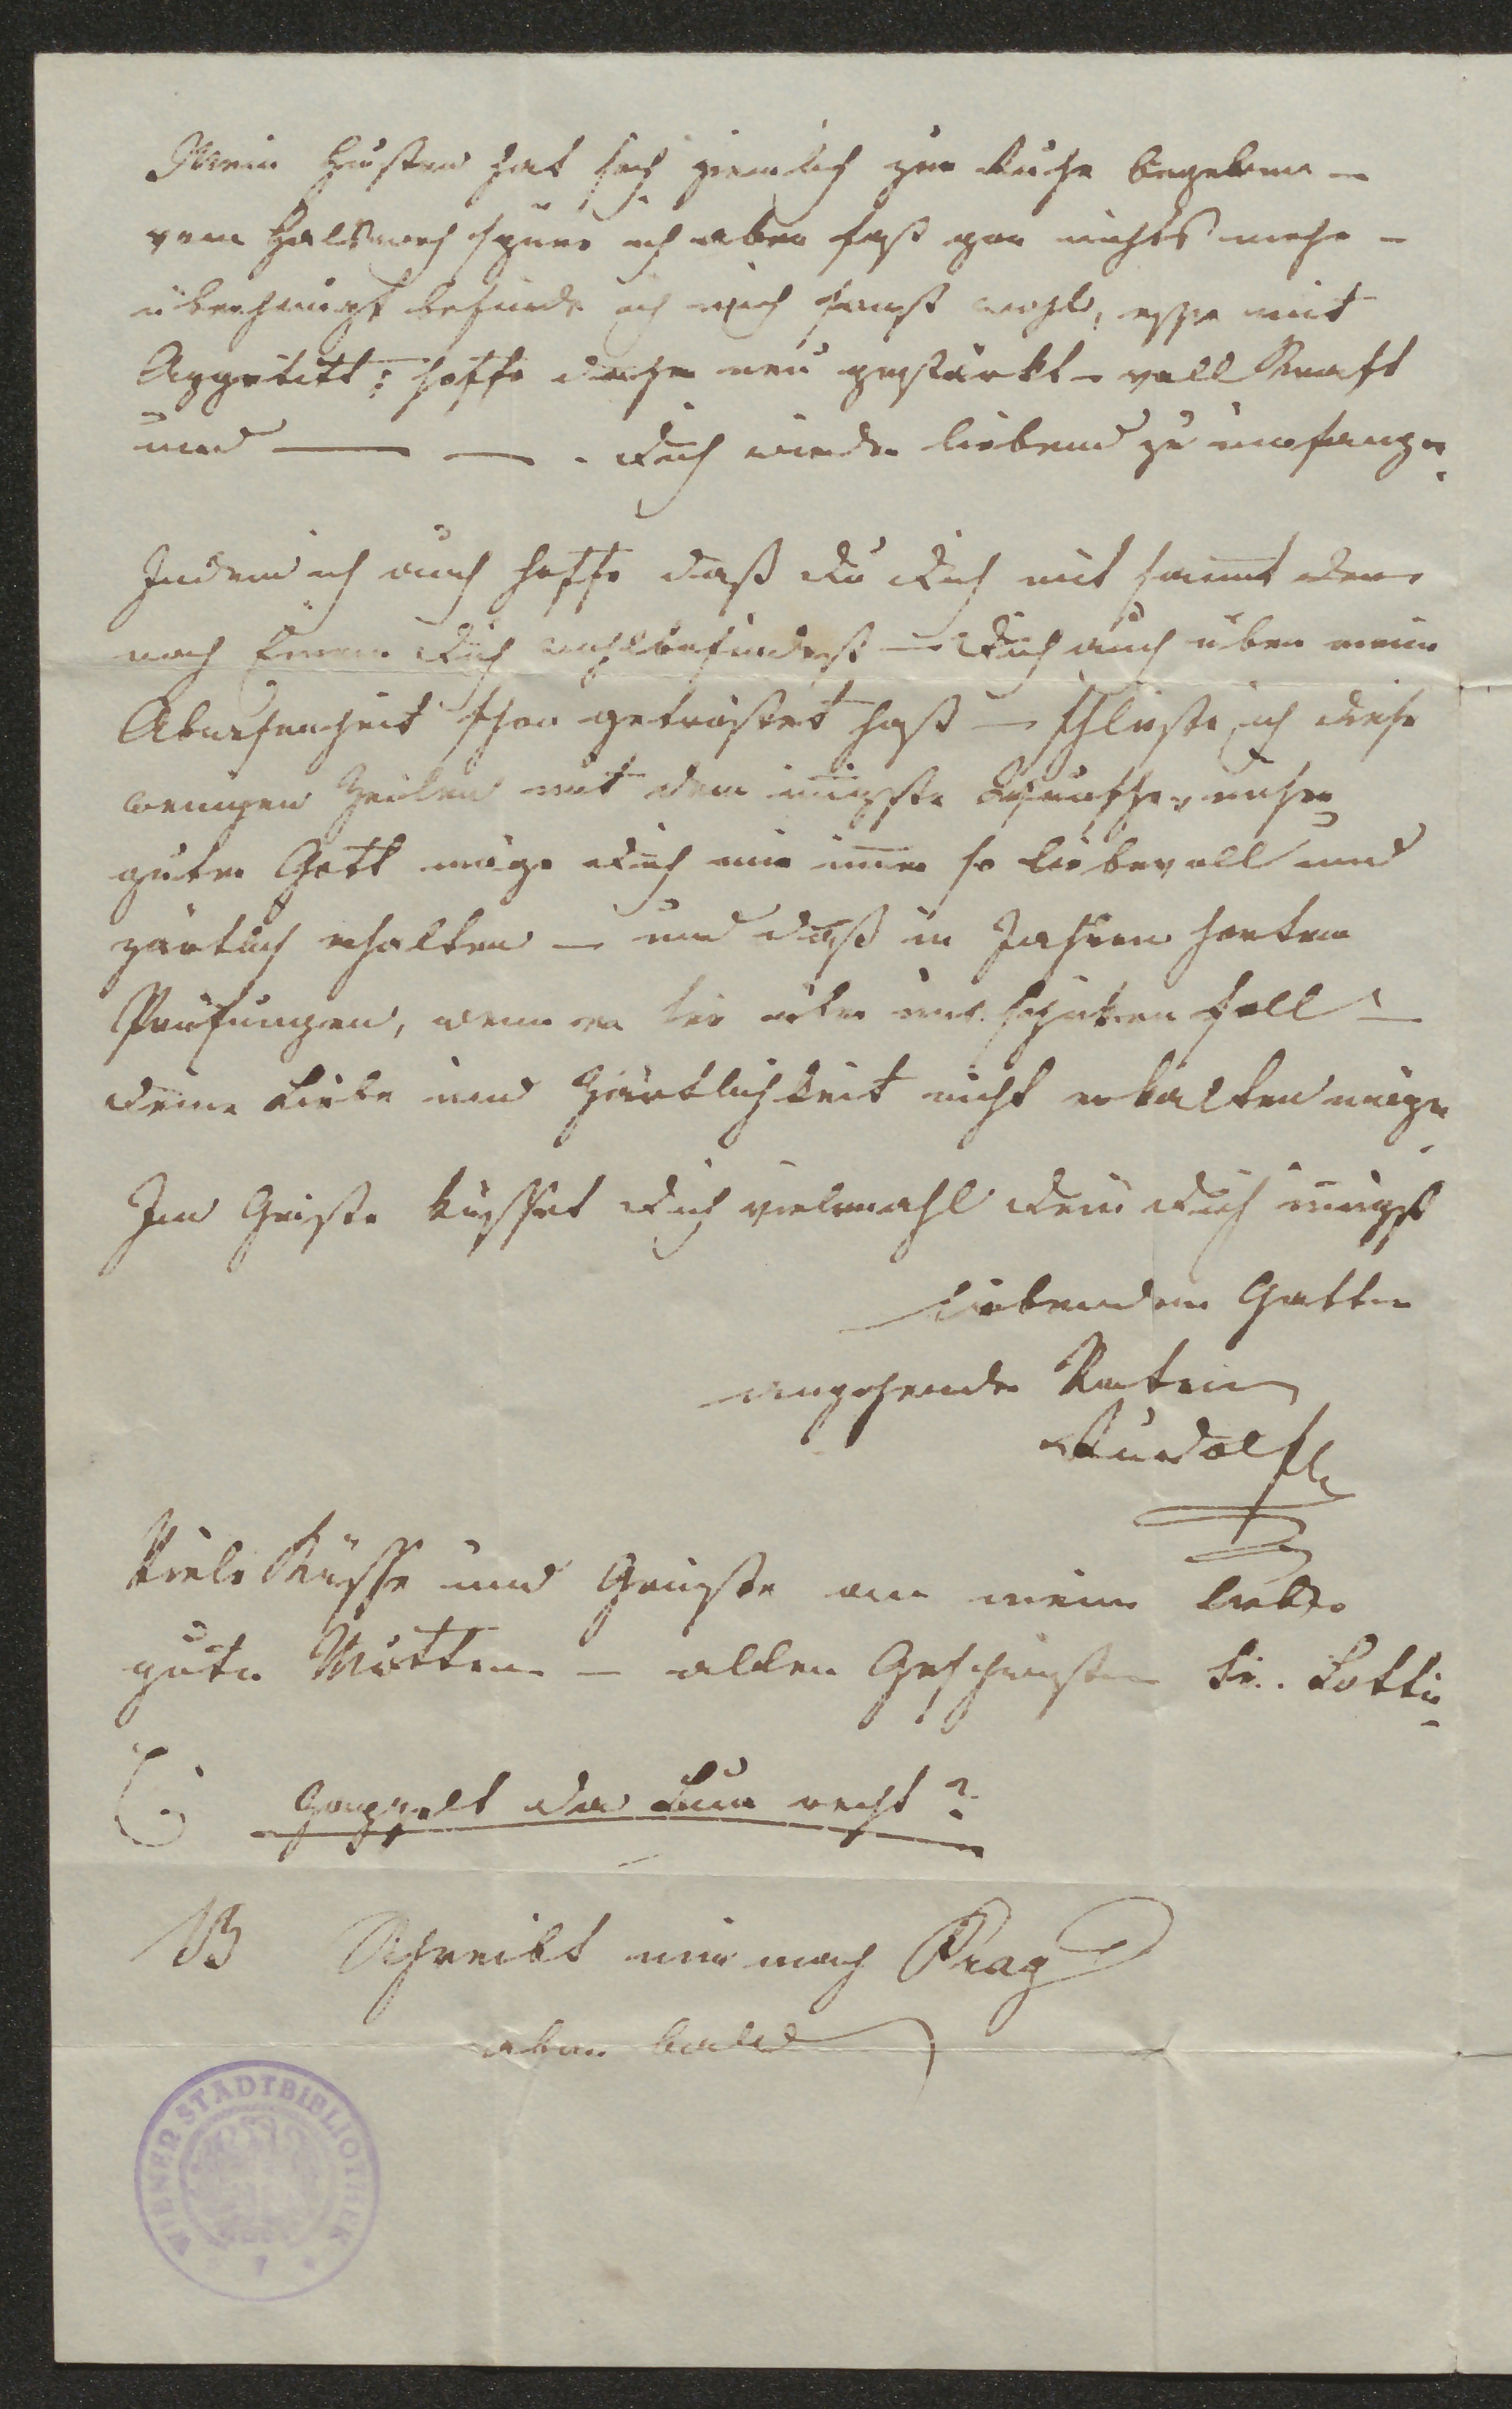 Mein Husten hat sich ziemlich zur Ruhe begeben –
vom Halsweh spüre ich aber fast gar nichts mehr –
überhaupt befinde ich mich sonst wohl, esse mit
Appetitt: hoffe daher neu gestärkt – voll Kraft
und — — . dich wieder liebend zu umfangen.
Indem ich auch hoffe daß du dich mit samt
noch dich wohlbefindest – dich auch über meine
Abwesenheit schon getröstet hast – schließe ich diese
wenigen Zeilen mit dem innigsten Wunsche, unser
guter Gott möge dich mir immer so liebevoll und
zärtlich erhalten – und daß in Jahren harter
Prüfungen, wenn er sie über uns schicken soll –
deine Liebe und Zärtlichkeit nicht erkalten möge.
Im Geiste küsset dich vielmahl dein dich innigst
liebender Gatte
angehender
Rudolf
Viele Küsse und Grüsse an meine liebe
gute Mutter – allen Geschwistern Lotti
der recht?
NB Schreibt mir nach Prag
aber bald
WIENER STADTBIBLIOTHEK